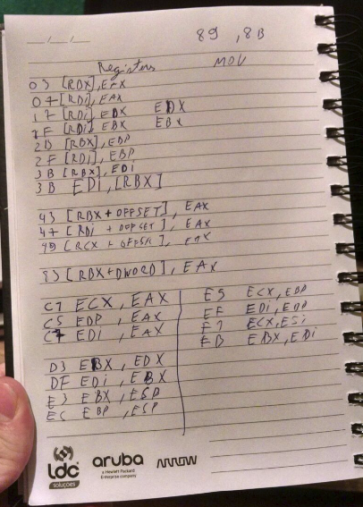 89 , 8B
Registers
MOV
03 [RBX], EAX
07 [RDi], EAX
17 [RDi], EDX EDX
1F [RDi], EBX EBX
2B [RBX], EBP
2F [RDi], EBP
3B [RBX], EDi
3B EDI, [RBX]
43 [RBX + OFFSET], EAX
47 [RDi + OFFSET], EAX
49 [RCX + OFFSET], EAX
83 [RBX+DWORD], EAX
C1 ECX, EAX
C5 EDP, EAX
C7 EDI, EAX
D3 EBX, EDX
DF EDi, EBX
E3 EBX, ESP
EC EBP, ESP
E9 ECX, EBP
EF EDi, EBP
F1 ECX, ESi
FB EBX, EDi
ldc
soluções
aruba
a Hewlett Packard
Enterprise company
ARROW